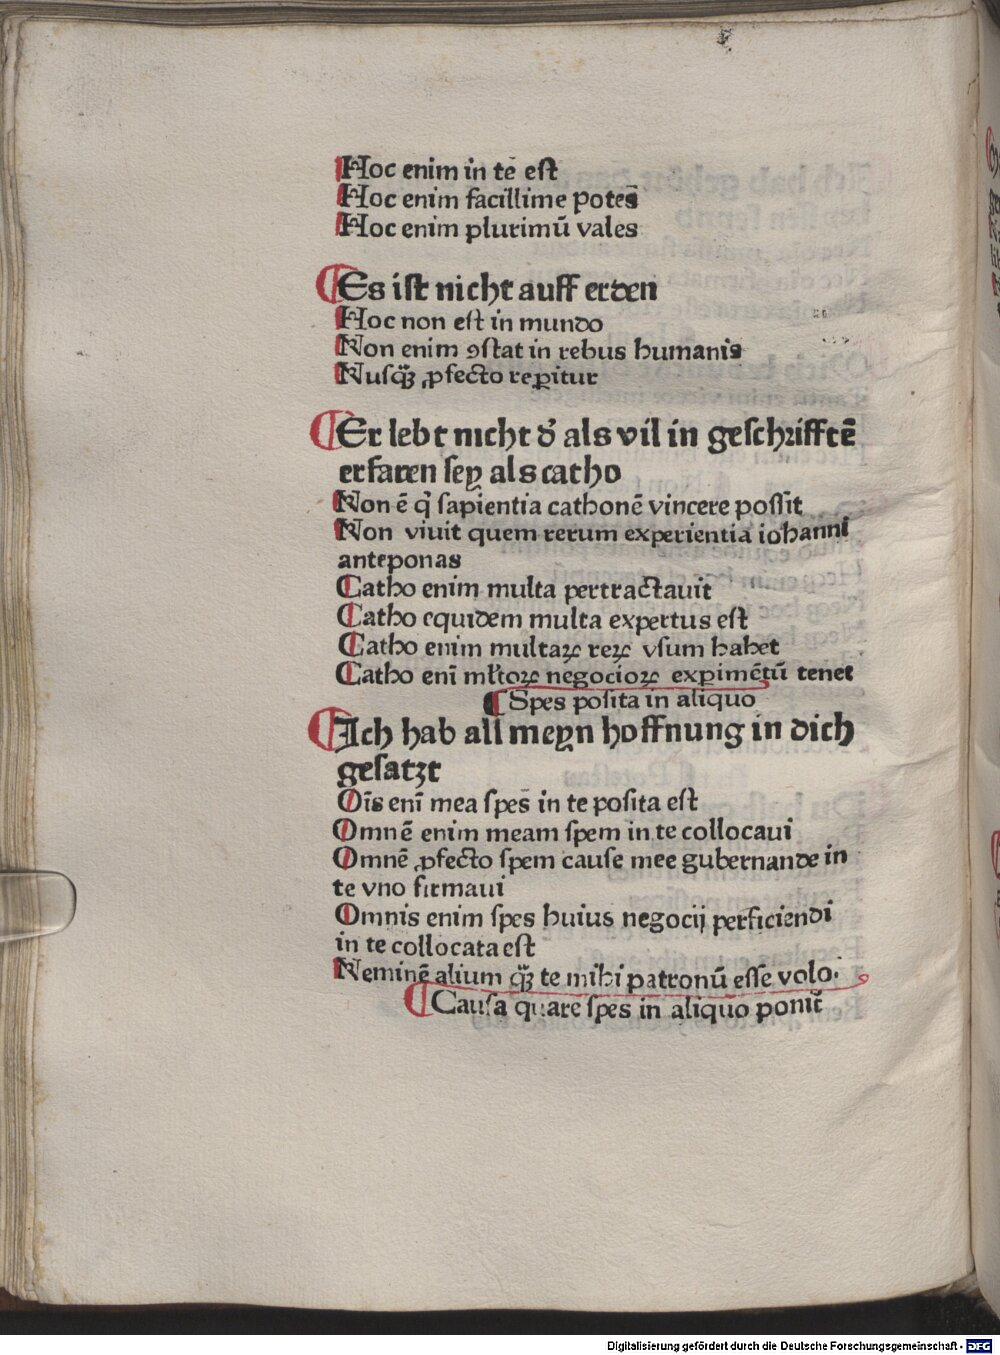 Hoc enim in tē est
Hoc enim facillime potes̄
Hoc enim plurimū vales
Es ist nicht auff erden
Hoc non est in mundo
Non enim ꝯstat in rebus humanis
Nusqᷓꝫ ꝓfecto reꝑitur
Er lebt nicht ď als vil in geschrifftē
erfaren sey als catho
Non ē qͥ sapientia cathonē vincere possit
Non viuit quem rerum experientia iohanni
anteponas
Catho enim multa pertractauit
Catho equidem multa expertus est
Catho enim multaꝝ reꝝ vsum habet
Catho enī ml̓toꝝ negocioꝝ exꝑimētū tenet
Spes posita in aliquo
Ich hab all meyn hoffnung in dich
gesatzt
Oīs enī mea spes̄ in te posita est
Omnē enim meam spem in te collocaui
Omnē ꝓfecto spem cause mee gubernande in
te vno firmaui
Omnis enim spes huius negocij perficiendi
in te collocata est
Neminē alium qᷓꝫ te mihi patronū esse volo.
Causa quare spes in aliquo ponit̄
Digitalisierung gefördert durch die Deutsche Forschungsgemeinschaft - DFG